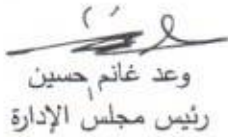 وعد غانم حسين
رئيس مجلس الإدارة